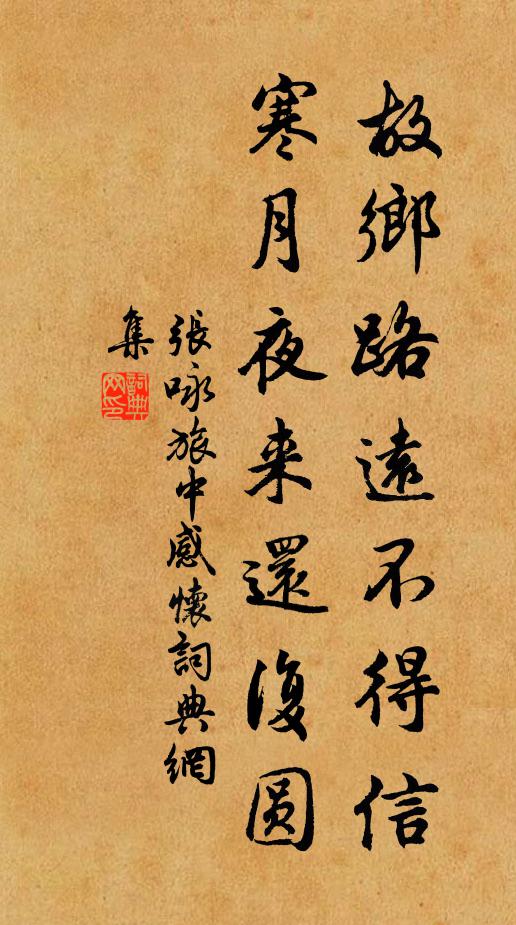 故鄉路遠不得信
寒月夜来還復圆
張咏旅中感懷詞典網
集
詞典
网印